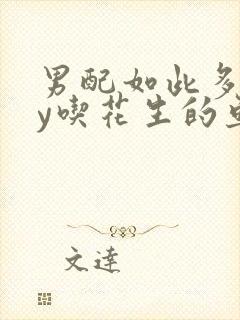 男配如此多
y喫花生的
文達